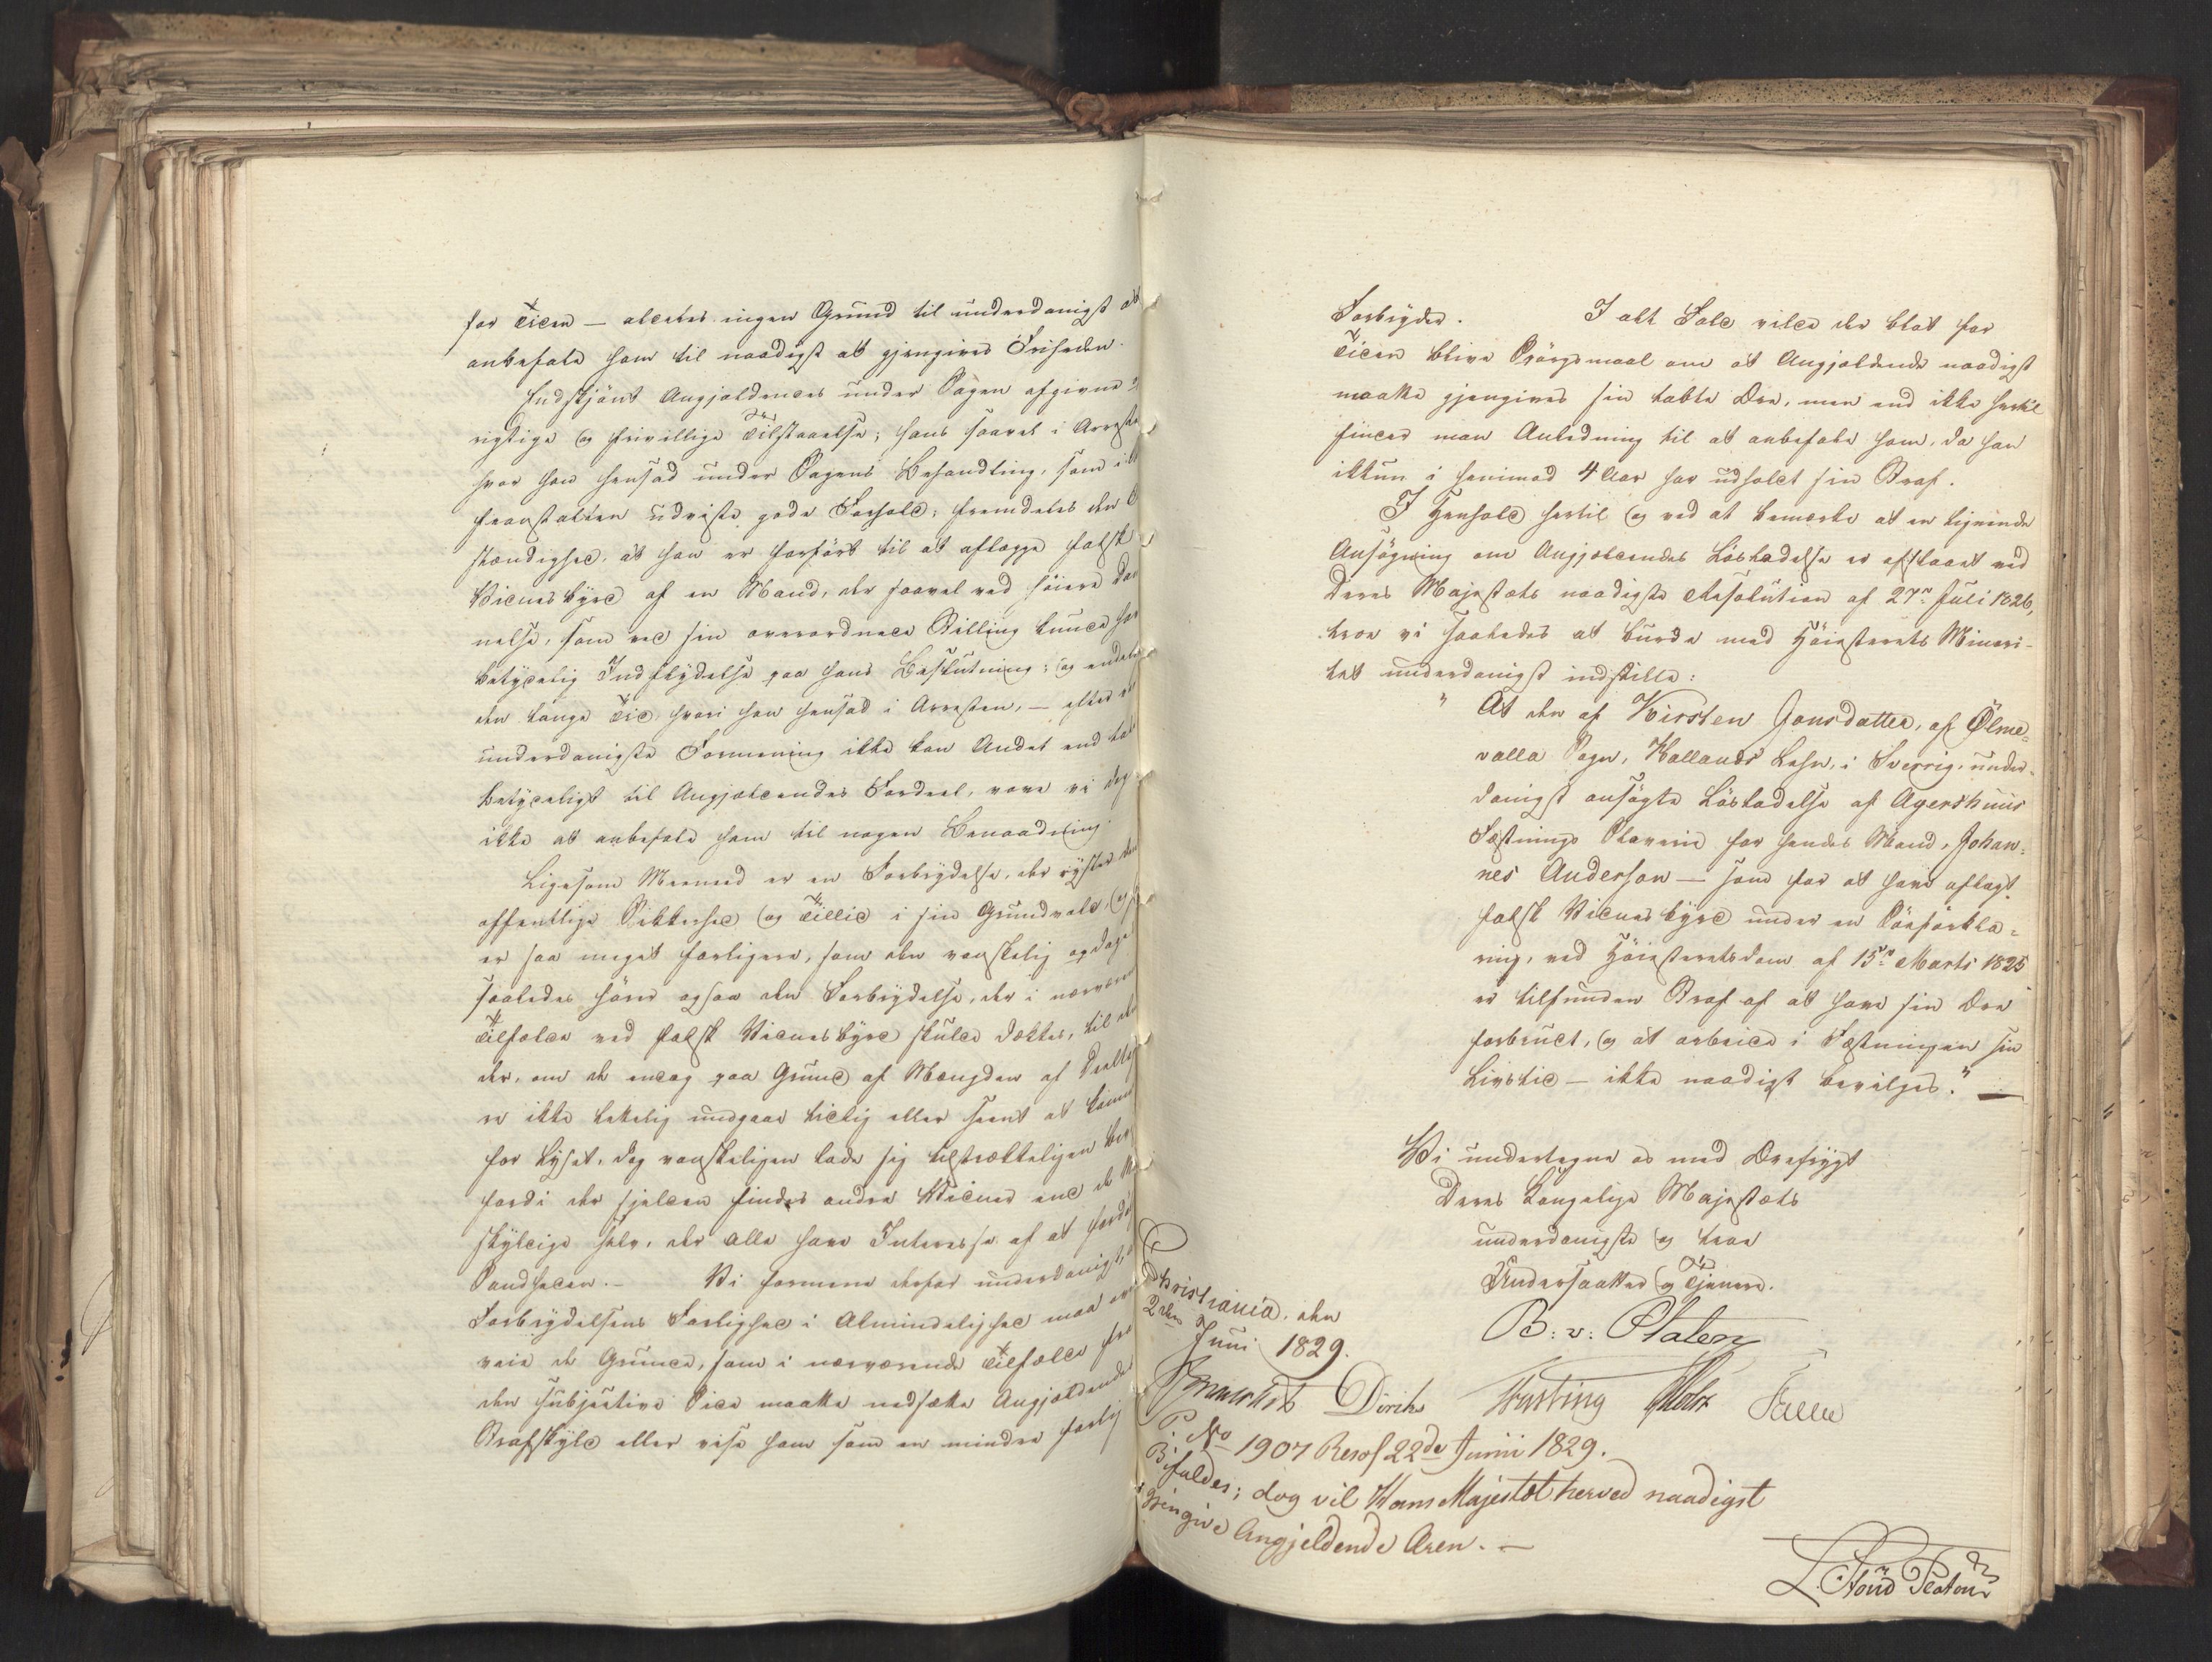 for Tiden — aldeles ingen Grund til underdanigst at
anbefale ham til naadigst at gjengives Friheden.
Endskjönt Angjeldendes under Sagen afgivne
rigtige og frivillige Tilstaaelse; hans saavel i Arresten
hvor han hensad under Sagens Behandling, som i
Straf Anstalten udviste gode Forhold; fremdeles den
stændighed, at han er forfört til at aflægge falsk
Vidnesbyrd af en Mand, der saavel ved höiere Dan
nelse, som ved sin overordnede Stilling kunde have
betydelig Indflydelse paa hans Beslutning; og endelig
den lange Tid hvori han hensad i Arresten, — efter
underdanigste Formening ikke kan Andet end tale
betydeligt til Angjeldendes Fordeel, vove vi dog
ikke at anbefale ham til nogen Benaadning.
Ligesom Meeneed er en Forbrydelse, der ryster den
offentlige Sikkerhed og Tillid i sin Grundvold, og
er saa meget farligere, som den vanskelig opdages
saaledes hörer ogsaa den Forbrydelse, der i nærværende
Tilfælde ved falsk Vidnesbyrd skulde dækkes, til
der, om de endog paa Grund af Mængden af Deeltag
er ikke lettelig undgaae tidlig eller seent at komme
for Lyset, dog vanskeligen lade sig tilstrækkeligen
fordi der sjelden findes andre Vidner end de
skyldige selv, der alle have Interesse af at
Sandheden. — Vi formene derfor underdanigst,
Forbrydelsens Farlighed i Almindelighed maa
veie de Grunde, som i nærværende Tilfælde fra
den subjective Side maatte nedsætte Angjeldendes
Strafskyld eller vise ham som en mindre farlig
Forbryder. I alt Fald vilde der blot for
Tiden blive Spörgsmaal om at Angjeldende naadigst
maatte gjengives sin tabte Ære, men end ikke hertil
finder man Anledning til at anbefale ham, da han
ikkun i henimod 4 Aar har udholdt sin Straf.
I Henhold hertil og ved at bemærke at en lignende
Ansögning om Angjeldendes Lösladelse er afslaaet ved
Deres Majestæts naadigste Resolution af 27de Juli 1826,
troe vi saaledes at burde med Höiesterets Minori-
tet underdanigst indstille:
" At den af Kirsten Jonsdatter, af Ölme-
valla Sogn, Hallands Lehn, i Sverrig, under-
danigst ansögte Lösladelse af Agershuus
Fæstnings Slaverie for hendes Mand, Johan-
nes Anderson — som for at have aflagt
falsk Vidnesbyrd under en Söeforkla-
ring, ved Höiesteretsdom af 15de Marts 1825
er tilfunden Straf af at have sin Ære
forbrudt, og at arbeide i Fæstningen sin
Livstid — ikke naadigst bevilges." —
Vi undertegne os med Ærefrygt
Deres Kongelige Majestæts
underdanigste og troe
Undersaatter og Tjenere.
Christiania, den
2den Juni 1829.
B: v: Platen
Diriks Fasting Holst
P. No 1907 Resol 22de Junii 1829.
Bifaldes; dog vil Hans Majestæt herved naadigst
gjengive Angjeldende Æren. —